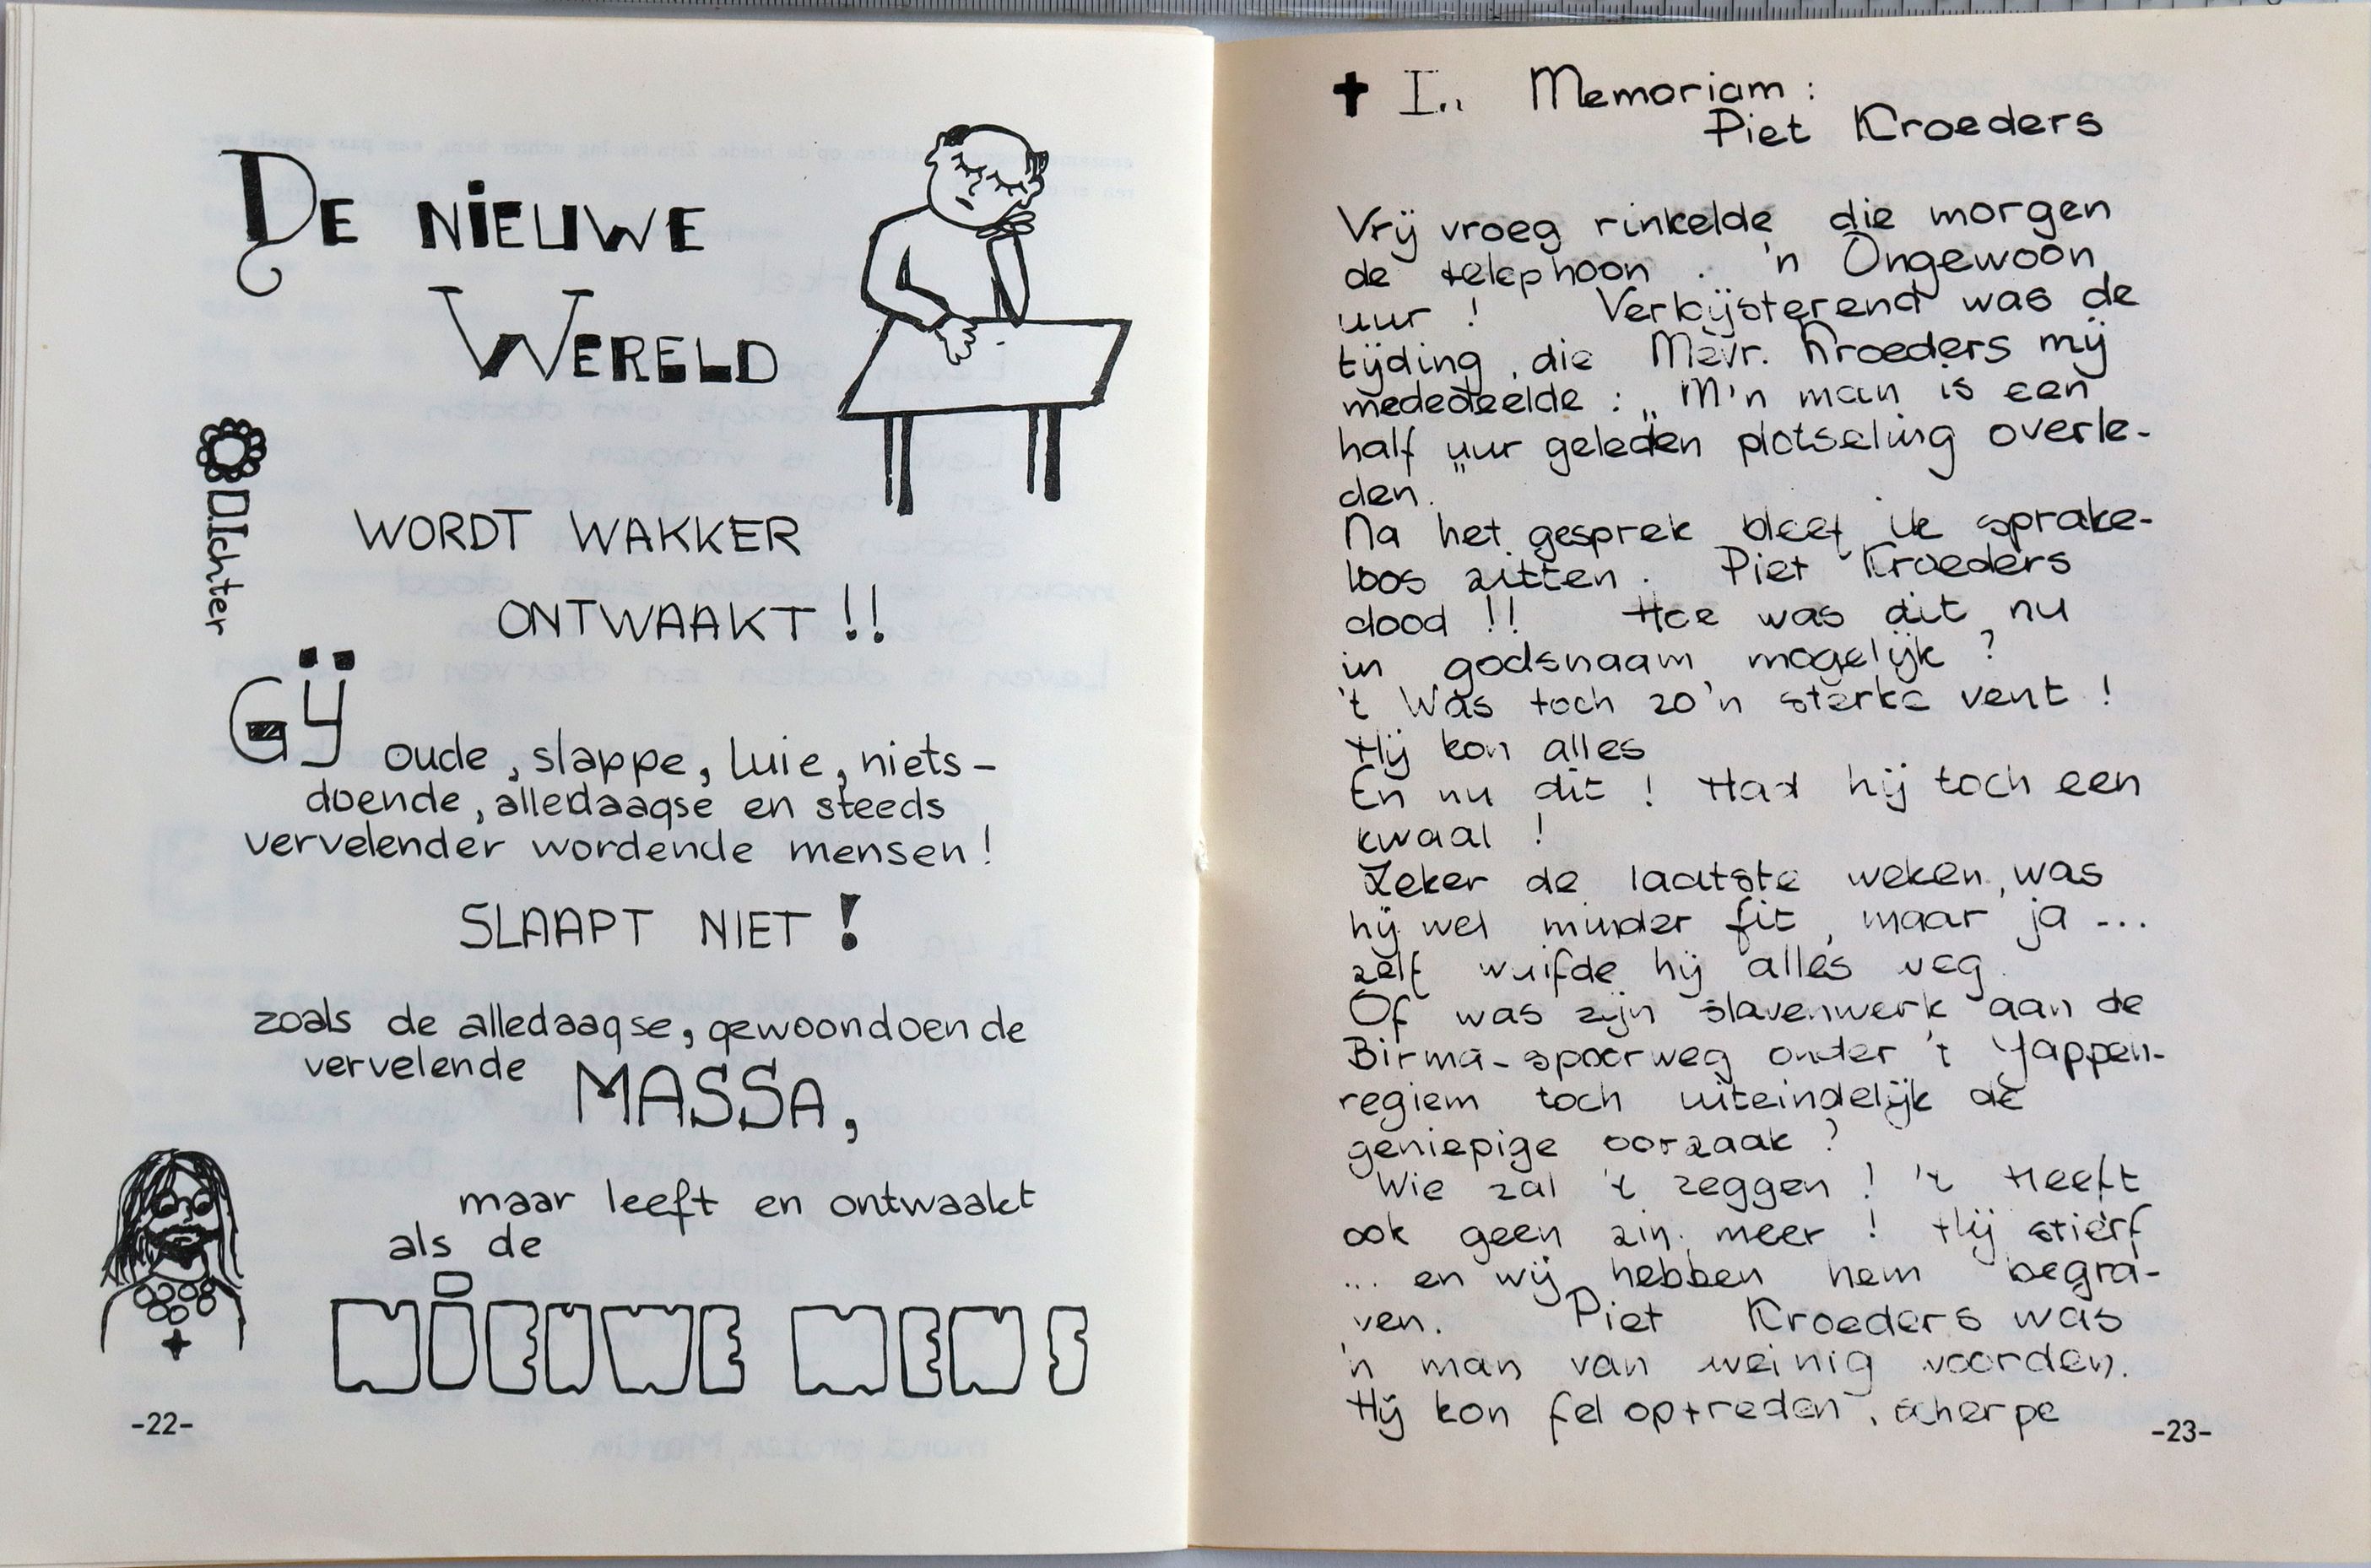 DE NIEUWE
WERELD
D.Ichter
WORDT WAKKER
ONTWAAKT !!
Gÿ oude, slappe, luie, niets-
doende, alledaagse en steeds
vervelender wordende mensen!
SLAAPT NIET!
zoals de alledaagse, gewoondoende
vervelende MASSA,
maar leeft en ontwaakt
als de
NIEUWE MENS
-22-
✝ In Memoriam :
Piet Kroeders
Vrij vroeg rinkelde die morgen
de telephoon . 'n Ongewoon
uur ! Verbijsterend was de
tijding , die Mevr. Kroeders mij
mededeelde : „ M'n man is een
half uur geleden plotseling overle-
den. "
Na het gesprek bleef ik sprake-
loos zitten . Piet Kroeders
dood !! Hoe was dit nu
in godsnaam mogelijk ?
't Was toch zo'n sterke vent !
Hij kon alles
En nu dit ! Had hij toch een
kwaal !
Zeker de laatste weken, was
hij wel minder fit , maar ja ...
zelf wuifde hij alles weg
Of was zijn slavenwerk aan de
Birma-spoorweg onder 't Jappen-
regiem toch uiteindelijk de
geniepige oorzaak ?
Wie zal 't zeggen ! 't Heeft
ook geen zin meer ! Hij stierf
... en wij hebben hem begra-
ven. Piet Kroeders was
'n man van weinig woorden.
Hij kon fel optreden , scherpe
-23-